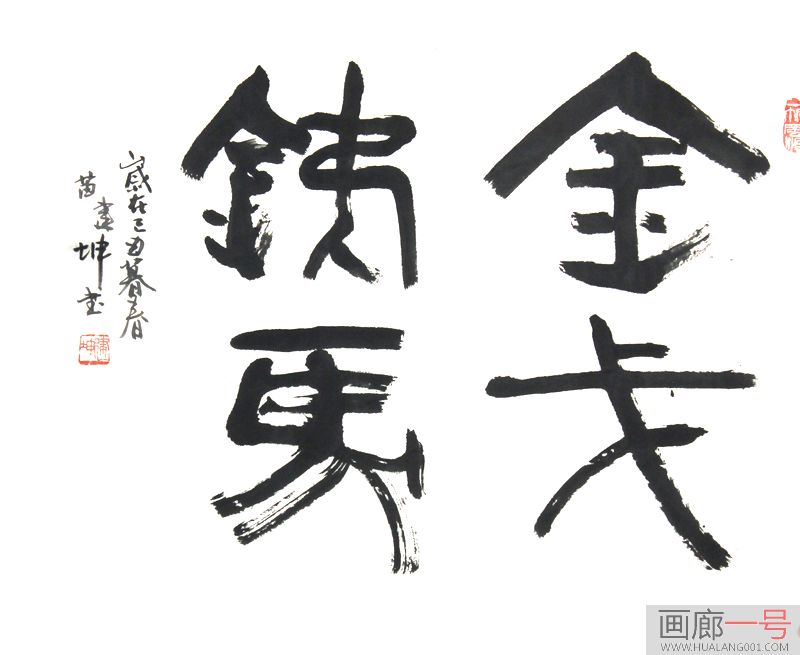 金戈
鉄馬
歲在己丑暮春
苗建坤书
画廊一号
WWW.HUALANG001.COM